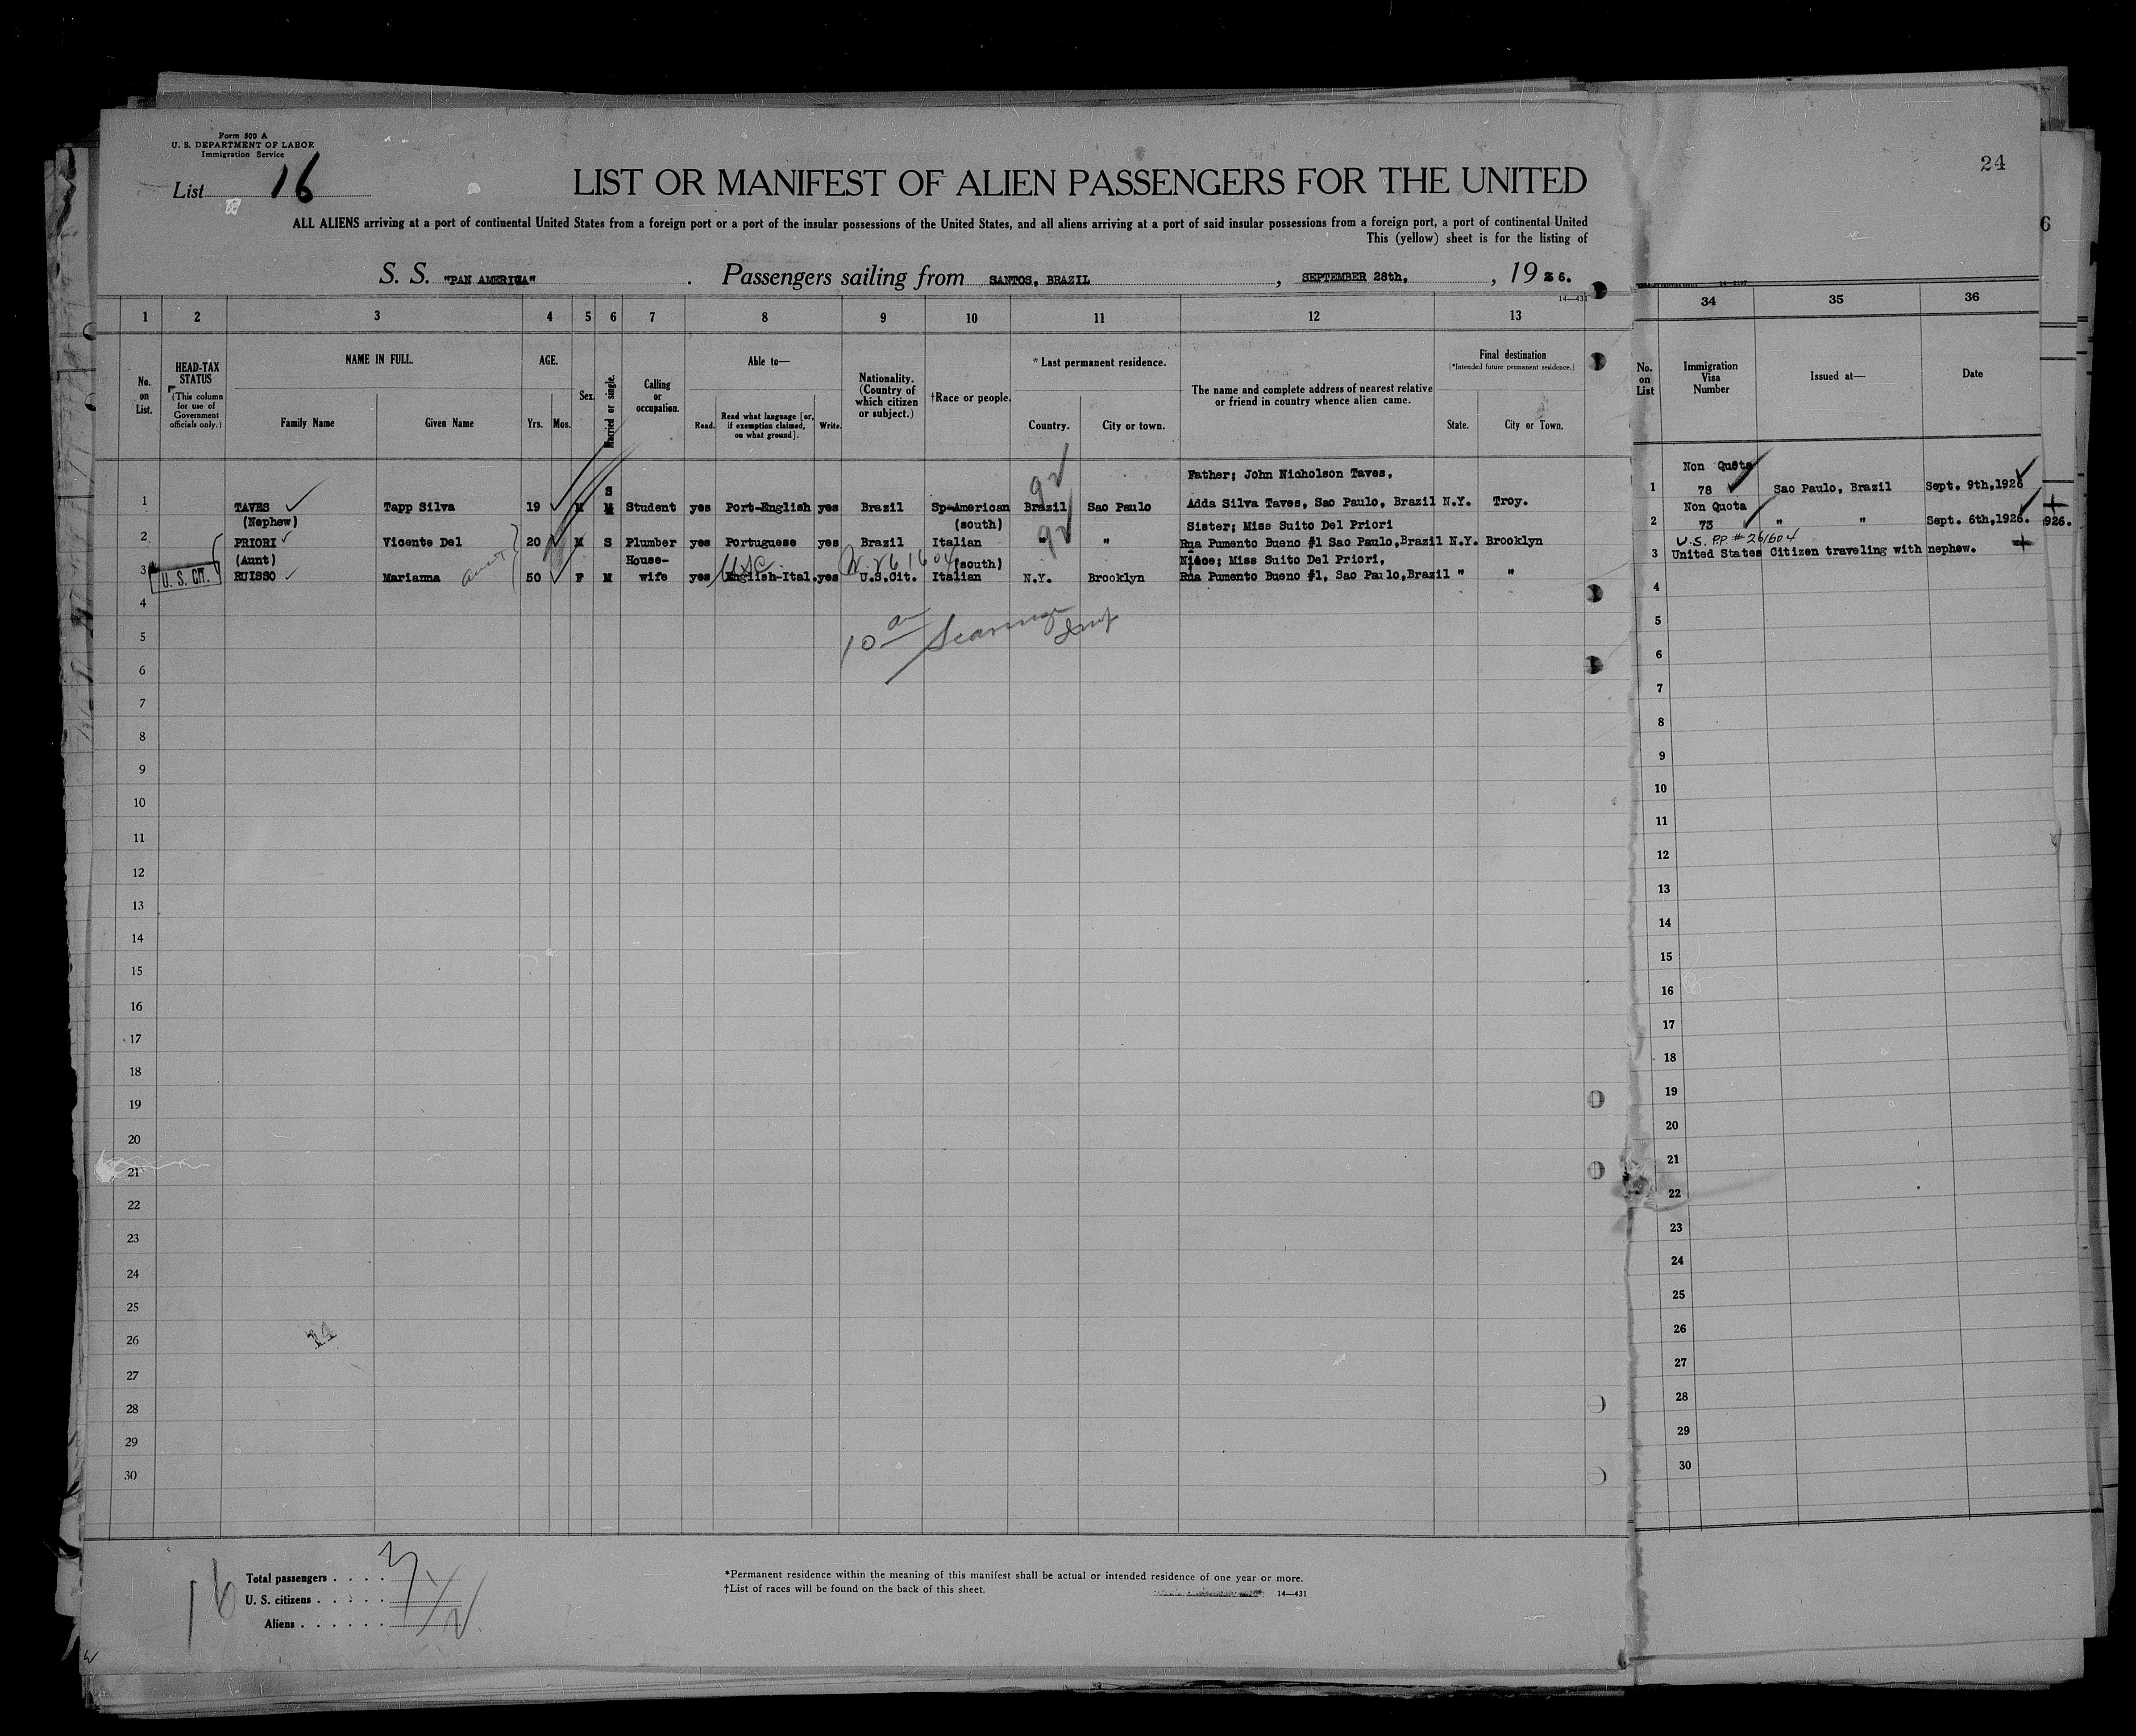 Form 500 A
U. S. DEPARTMENT OF LABOR
Immigration Service
List 16
24
LIST OR MANIFEST OF ALIEN PASSENGERS FOR THE UNITED
ALL ALIENS arriving at a port of continental United States from a foreign port or a port of the insular possessions of the United States, and all aliens arriving at a port of said insular possessions from a foreign port, a port of continental United
This (yellow) sheet is for the listing of
6
S. S. "PAN AMERICA" . Passengers sailing from SANTOS, BRAZIL , SEPTEMBER 28th, , 1926.
14—431
1 2 3 4 5 6 7 8 9 10 11 12 13 34 35 36
No. on List.
HEAD-TAX STATUS
(This column for use of Government officials only.)
NAME IN FULL.
Family Name
Given Name
AGE.
Yrs.
Mos.
Sex.
Married or single.
Calling or occupation.
Able to—
Read.
Read what language [or, if exemption claimed, on what ground].
Write.
Nationality. (Country of which citizen or subject.)
†Race or people.
*Last permanent residence.
Country.
City or town.
The name and complete address of nearest relative or friend in country whence alien came.
Final destination
[*Intended future permanent residence.]
State.
City or Town.
No. on List
Immigration Visa Number
Issued at—
Date
Father; John Nicholson Taves,
Non Quota
1 TAVES Tapp Silva 19 M S M Student yes Port-English yes Brazil Sp-American Brazil Sao Paulo Adda Silva Taves, Sao Paulo, Brazil N.Y. Troy. 1 78 Sao Paulo, Brazil Sept. 9th,1926
(Nephew) (south) Sister; Miss Suito Del Priori Non Quota
2 PRIORI Vicente Del 20 M S Plumber yes Portuguese yes Brazil Italian " " Rua Pumento Bueno #1 Sao Paulo,Brazil N.Y. Brooklyn 2 73 " " Sept. 6th,1926. 926.
(Aunt) House- USC N. 261604 (south) Niece; Miss Suito Del Priori, U.S. P.P. # 261604
3 U. S. CIT. RUISSO Marianna Aunt 50 F M wife yes English-Ital. yes U.S.Cit. Italian N.Y. Brooklyn Rua Pumento Bueno #1, Sao Paulo,Brazil " " 3 United States Citizen traveling with nephew.
4 4
10
5 5
6 6
7 7
8 8
9 9
10 10
11 11
12 12
13 13
14 14
15 15
16 16
17 17
18 18
19 19
20 20
21 21
22 22
23 23
24 24
25 25
26 26
27 27
28 28
29 29
30 30
16
Total passengers . . . . 3
U. S. citizens . . . . . 1
Aliens . . . . . . 2
*Permanent residence within the meaning of this manifest shall be actual or intended residence of one year or more.
†List of races will be found on the back of this sheet.
14—431